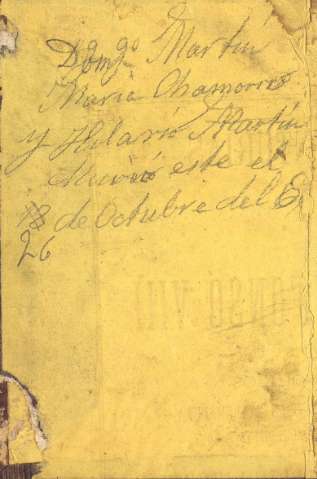 Domgo Martin
Maria Chamorro
y Hilario Martin
Murió este el
18 de Octubre del
26